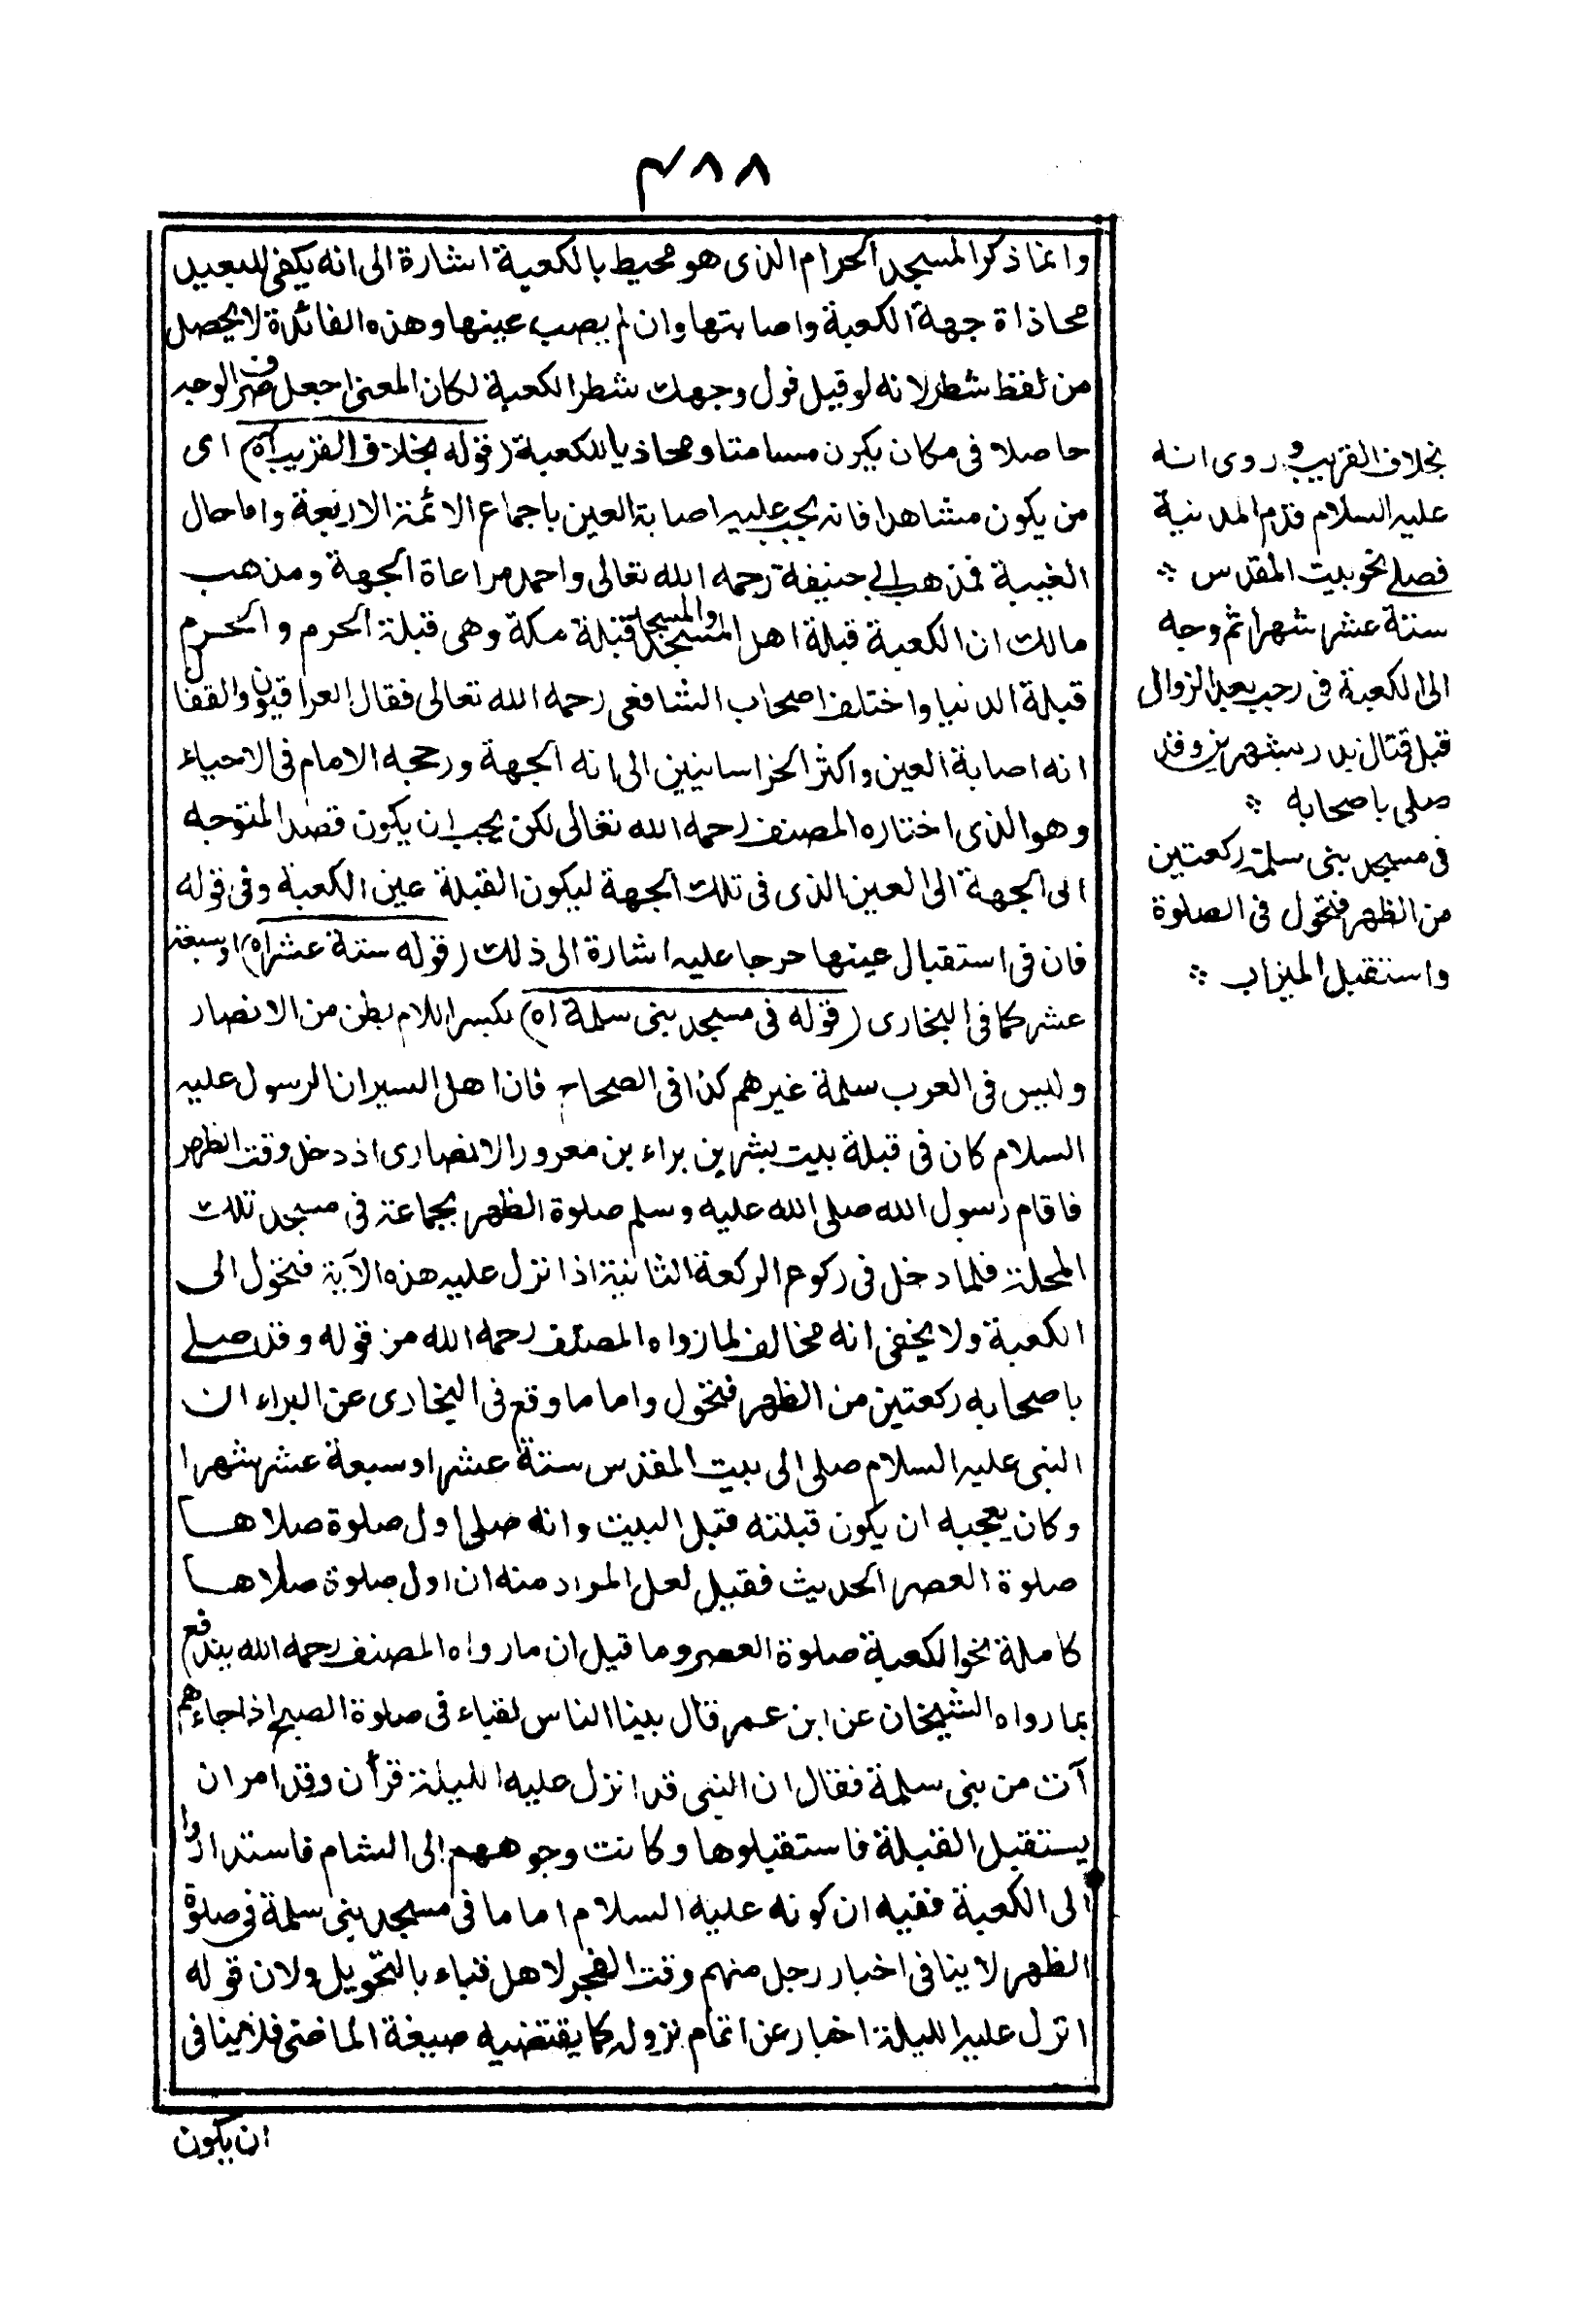 ٤٨٨
وانما ذكر المسجد الحرام الذى هو محيط بالكعبة اشارة الى انه يكفى للبعيد
محاذاة جهة الكعبة واصابتها وان لم يصب عينها وهذه الفائدة لا يحصل
من لفظ شطر لانه لو قيل فول وجهك شطر الكعبة لكان المعنى اجعل صرف الوجه
حاصلا فى مكان يكون مسامتا ومحاذيا للكعبة (قوله بخلاف القريب اه) اى
من يكون مشاهدا فانه يجب عليه اصابة العين باجماع الائمة الاربعة واما حال
الغيبة فمذهب ابى حنيفة رحمه الله تعالى واحمد مراعاة الجهة ومذهب
مالك ان الكعبة قبلة اهل المسجد والمسجد قبلة مكة وهى قبلة الحرم والحرم
قبلة الدنيا واختلف اصحاب الشافعى رحمه الله تعالى فقال العراقيون والقفال
انه اصابة العين واكثر الخراسانيين الى انه الجهة ورجحه الامام فى الاحياء
وهو الذى اختاره المصنف رحمه الله تعالى لكن يجب ان يكون قصد المتوجه
الى الجهة الى العين الذى فى تلك الجهة ليكون القبلة عين الكعبة وفى قوله
فان فى استقبال عينها حرجا عليه اشارة الى ذلك (قوله ستة عشر اه) او سبعة
عشر كما فى البخارى (قوله فى مسجد بنى سلمة اه) بكسر اللام بطن من الانصار
وليس فى العرب سلمة غيرهم كذا فى الصحاح قان اهل السير ان الرسول عليه
السلام كان فى قبلة بيت بشر بن براء بن معرور الانصارى اذ دخل وقت الظهر
فاقام رسول الله صلى الله عليه وسلم صلوة الظهر بجماعة فى مسجد تلك
المحلة فلما دخل فى ركوع الركعة الثانية اذا نزل عليه هذه الآية فتحول الى
الكعبة ولا يخفى انه مخالف لما رواه المصنف رحمه الله من قوله وقد صلى
باصحابه ركعتين من الظهر فتحول واما ما وقع فى البخارى عن البراء ان
النبى عليه السلام صلى الى بيت المقدس ستة عشر او سبعة عشر شهرا
وكان يعجبه ان يكون قبلته قبل البيت وانه صلى اول صلوة صلاها
صلوة العصر الحديث فقيل لعل المراد منه ان اول صلوة صلاها
كاملة نحو الكعبة صلوة العصر وما قيل ان ما رواه المصنف رحمه الله يندفع
بما رواه الشيخان عن ابن عمر قال بينا الناس لقباء فى صلوة الصبح اذا جاءهم
آت من بنى سلمة فقال ان النبى قد انزل عليه الليلة قرأن وقد امر ان
يستقبل القبلة فاستقبلوها وكانت وجوههم الى الشام فاستداروا
الى الكعبة ففيه ان كونه عليه السلام اماما فى مسجد بنى سلمة فى صلوة
الظهر لا ينافى اخبار رجل منهم وقت الفجر لاهل قباء بالتحويل ولان قوله
انزل عليه الليلة اخبار عن اتمام نزوله كما يقتضيه صيغة الماضى فلا ينافى
ان يكون
بخلاف القريب وروى انه
عليه السلام قدم المدينة
فصلى نحو بيت المقدس
ستة عشر شهرا ثم وجه
الى الكعبة فى رجب بعد الزوال
قبل قتال بدر بشهرين وقد
صلى باصحابه
فى مسجد بنى سلمة ركعتين
من الظهر فتحول فى الصلوة
واستقبل الميزاب